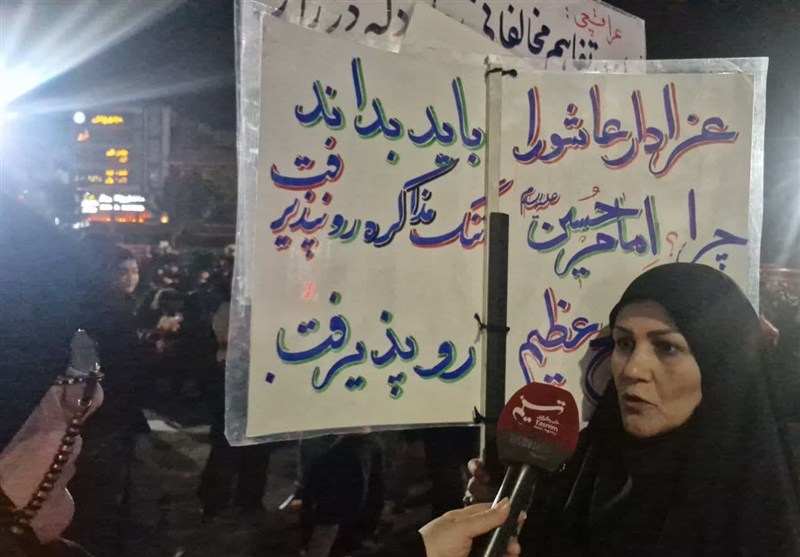 عراقچی:
تفاهم مخالفانی
عزادار عاشورا باید بداند
چرا؟ امام حسین علیه السلام ننگ مذاکره رو نپذیرفت
عظیم رو پذیرفت
تسنیم
Tasnim